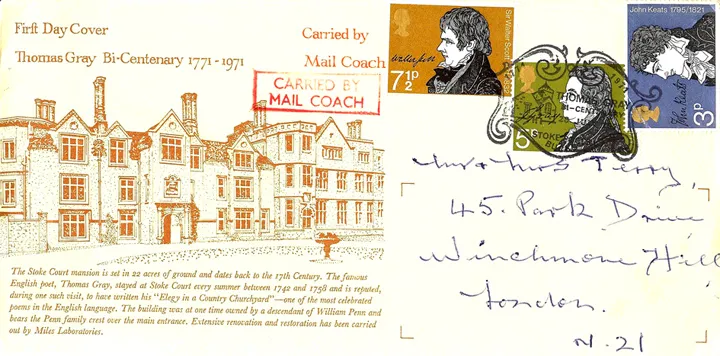 First Day Cover
Thomas Gray Bi-Centenary 1771-1971
Carried by
Mail Coach
CARRIED BY
MAIL COACH
7½P
Sir Walter Scott
John Keats 1795/1821
John Keats
3P
5
THOMAS GRAY
BI-CENTENARY
STOKE
Mr & Mrs Terry,
45. Park Drive
Winchmore Hill
London.
N. 21
The Stoke Court mansion is set in 22 acres of ground and dates back to the 17th Century. The famous
English poet, Thomas Gray, stayed at Stoke Court every summer between 1742 and 1758 and is reputed,
during one such visit, to have written his "Elegy in a Country Churchyard"—one of the most celebrated
poems in the English language. The building was at one time owned by a descendant of William Penn and
bears the Penn family crest over the main entrance. Extensive renovation and restoration has been carried
out by Miles Laboratories.